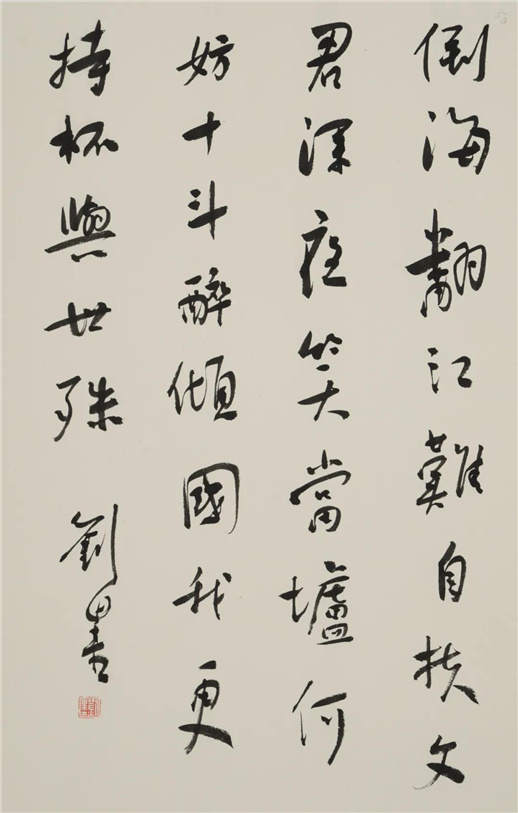 倒海翻江難自扶文
君深笑當壚何
妨十斗醉傾國我更
持杯與世殊
劉墨